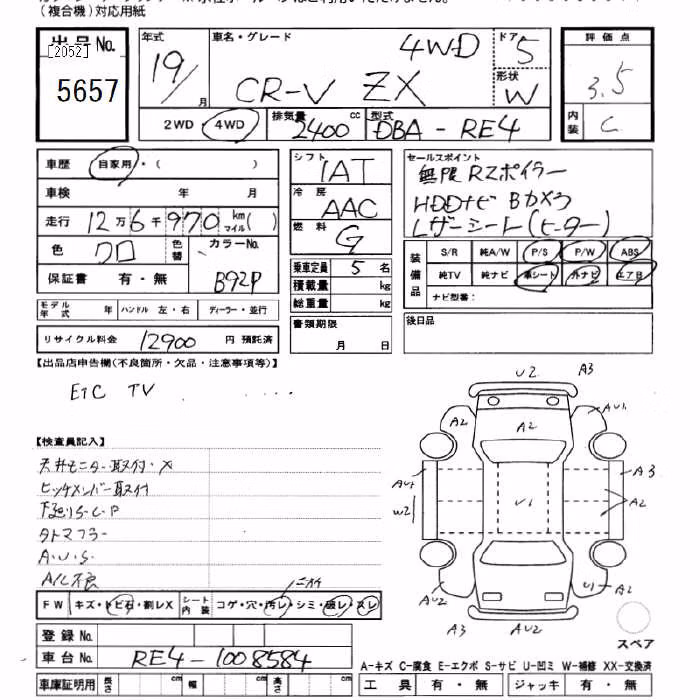 (複合機)対応用紙
出品No.
[2052]
5657
年式 19/ 月
車名・グレード 4WD
CR-V ZX
ドア 5
形状 W
評価点 3.5
内装 C
2WD・4WD
排気量 2400 cc
型式 DBA-RE4
車歴 自家用・( )
車検 年 月
走行 12万6千970 km マイル( )
色 クロ 色替 カラーNo. B92P
保証書 有・無
モデル年式 年 ハンドル 左・右 ディーラー・並行
リサイクル料金 12900 円 預託済
シフト IAT
冷房 AAC
燃料 G
乗車定員 5 名
積載量 kg
総重量 kg
書類期限 月 日
セールスポイント
無限RZポイラー
HDDナビ Bカメラ
レザーシート(ヒーター)
装備品
S/R 純A/W P/S P/W ABS
純TV 純ナビ 革シート 外ナビ エアB
ナビ型番:
後日品
【出品店申告欄(不良箇所・欠品・注意事項等)】
EtC TV
【検査員記入】
天井モニター取付・X
ヒッチメンバー取付
下廻りS・C・P
タトマフラー
A・U・S
A/C不良
FW キズ・トビ石・割レX シート内装 コゲ・穴・汚レ・シミ・破レ・スレ
ニオイ
登録No.
車台No. RE4-1008584
車庫証明用 長さ cm 幅 cm 高さ cm
U2 A3
A2 A2 AU1
AU1 W2 U1 A3 A2
AU2 U1 A2
A3 AU2
スペア
A-キズ C-腐食 E-エクボ S-サビ U-凹ミ W-補修 XX-交換済
工具 有・無 ジャッキ 有・無